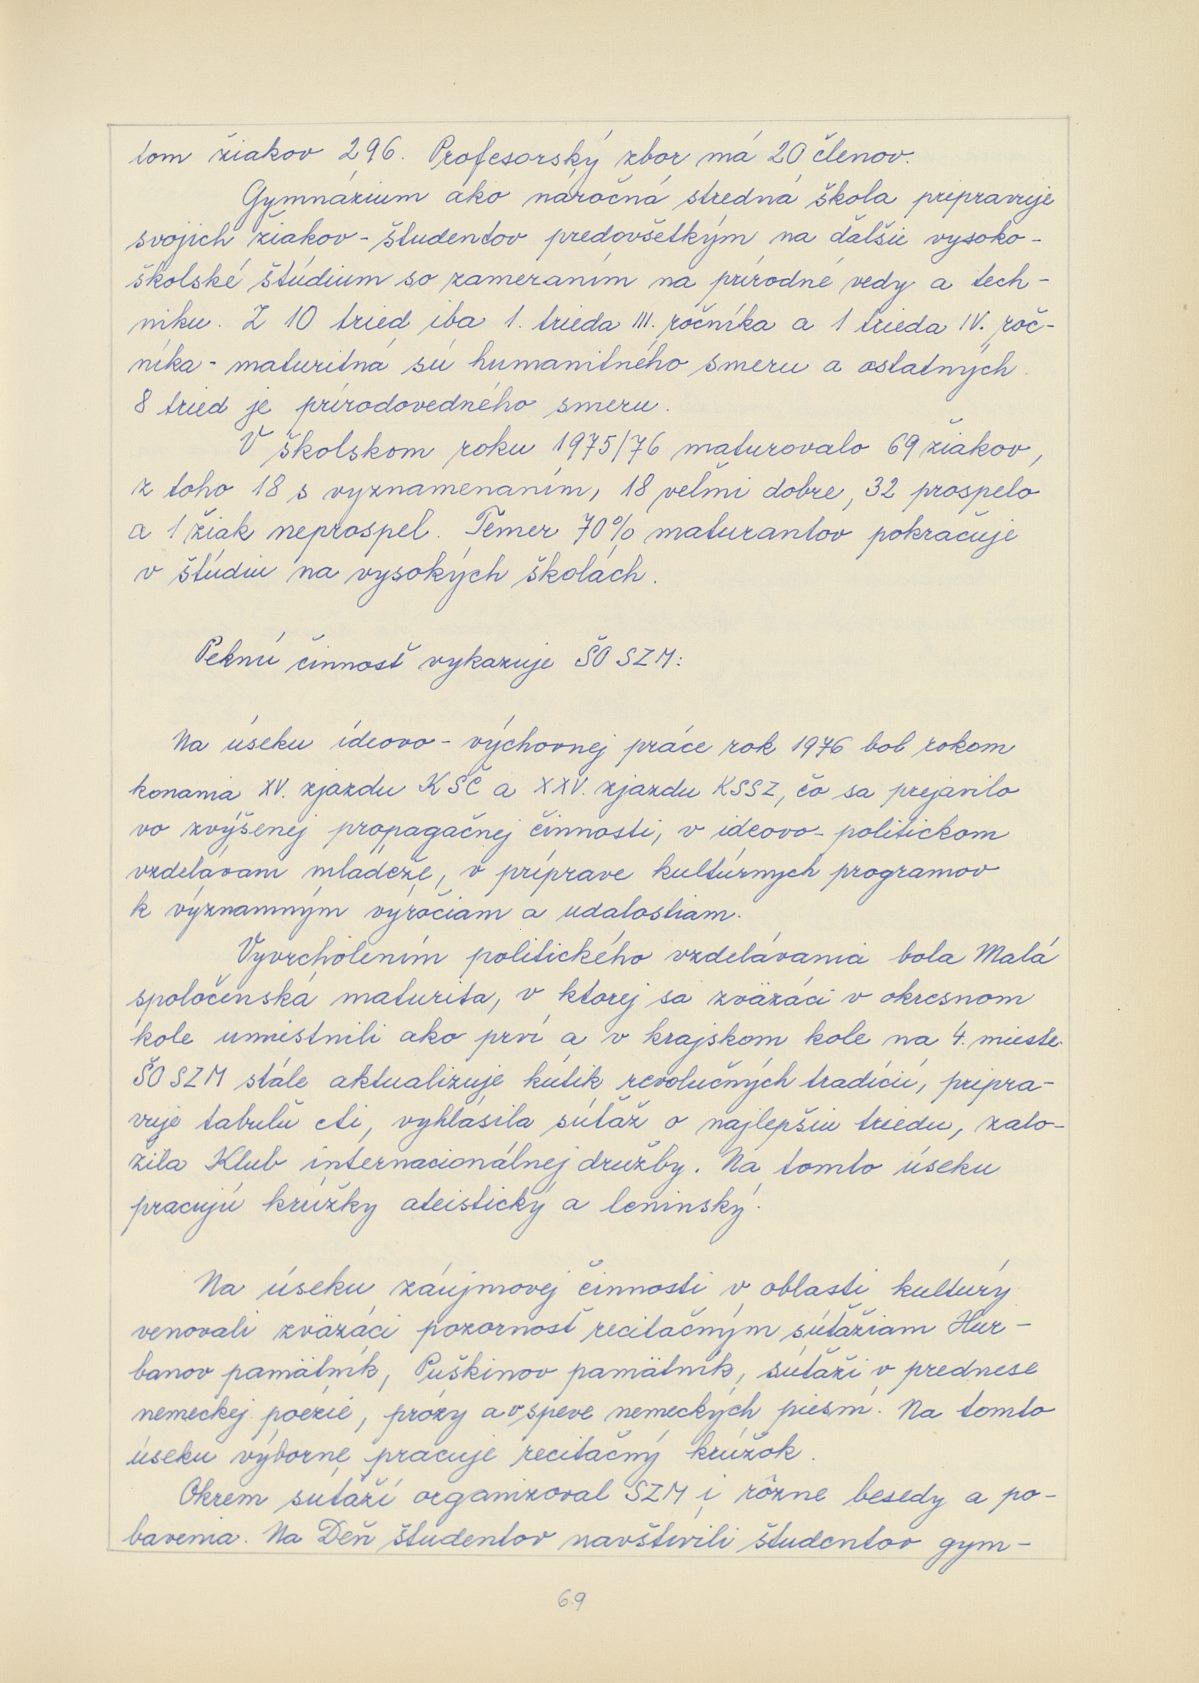 tom žiakov 296. Profesorský zbor má 20 členov.
Gymnázium ako náročná stredná škola pripravuje
svojich žiakov - študentov predovšetkým na ďalšie vysoko-
školské štúdium so zameraním na prírodné vedy a tech-
niku. Z 10 tried iba 1. trieda III. ročníka a 1 trieda IV. roč-
níka - maturitná sú humanitného smeru a ostatných
8 tried je prírodovedného smeru.
V školskom roku 1975/76 maturovalo 69 žiakov,
z toho 18 s vyznamenaním, 18 veľmi dobre, 32 prospelo
a 1 žiak neprospel. Temer 70% maturantov pokračuje
v štúdiu na vysokých školách.
Peknú činnosť vykazuje ŠO SZM:
Na úseku ideovo - výchovnej práce rok 1976 bol rokom
konania XV. zjazdu KSČ a XXV. zjazdu KSSZ, čo sa prejavilo
vo zvýšenej propagačnej činnosti, v ideovo - politickom
vzdelávaní mládeže, v príprave kultúrnych programov
k významným výročiam a udalostiam.
Vyvrcholením politického vzdelávania bola Malá
spoločenská maturita, v ktorej sa zväzáci v okresnom
kole umiestnili ako prví a v krajskom kole na 4. mieste.
ŠO SZM stále aktualizuje kútik revolučných tradícií, pripra-
vuje tabuľu cti, vyhlásila súťaž o najlepšiu triedu, zalo-
žila Klub internacionálnej družby. Na tomto úseku
pracujú krúžky ateistický a leninský.
Na úseku záujmovej činnosti v oblasti kultúry
venovali zväzáci pozornosť recitačným súťažiam Hur-
banov pamätník, Puškinov pamätník, súťaži v prednese
nemeckej poézie, prózy a v speve nemeckých piesní. Na tomto
úseku výborne pracuje recitačný krúžok.
Okrem súťaží organizoval SZM i rôzne besedy a po-
bavenia. Na Deň študentov navštívili študentov gym-
69